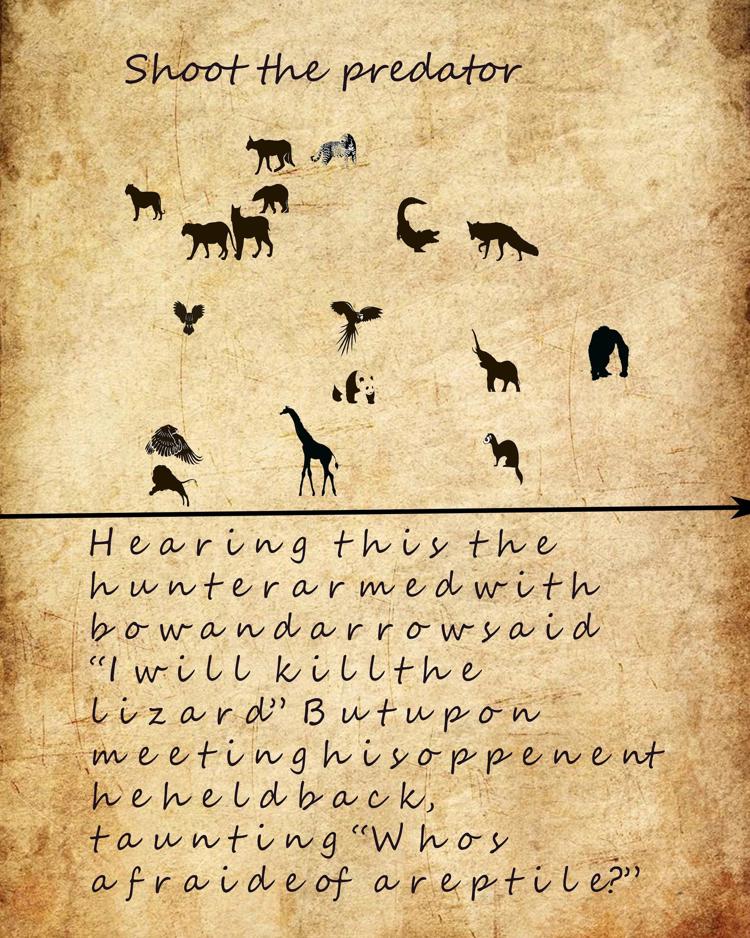 Shoot the predator
Hearing this the
hunterarmedwith
bowandarrowsaid
“I will killthe
lizard” Butupon
meetinghisoppenent
heheldback,
taunting “Whos
afraideof areptile?”